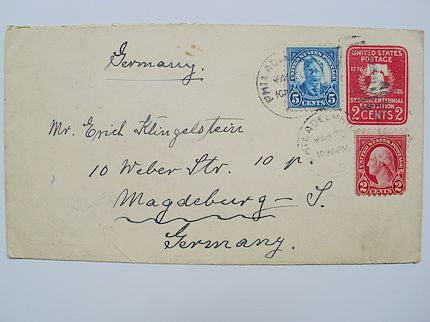 Germany.
UNITED STATES POSTAGE
5 CENTS 5
UNITED STATES
POSTAGE
1776
SESQUICENTENNIAL
EXPOSITION
2 CENTS 2
Mr. Erich Klingelstein
10 30 PM
10 Weber Str. 10 p.
UNITED STATES POSTAGE
2 CENTS 2
Magdeburg – S.
Germany.